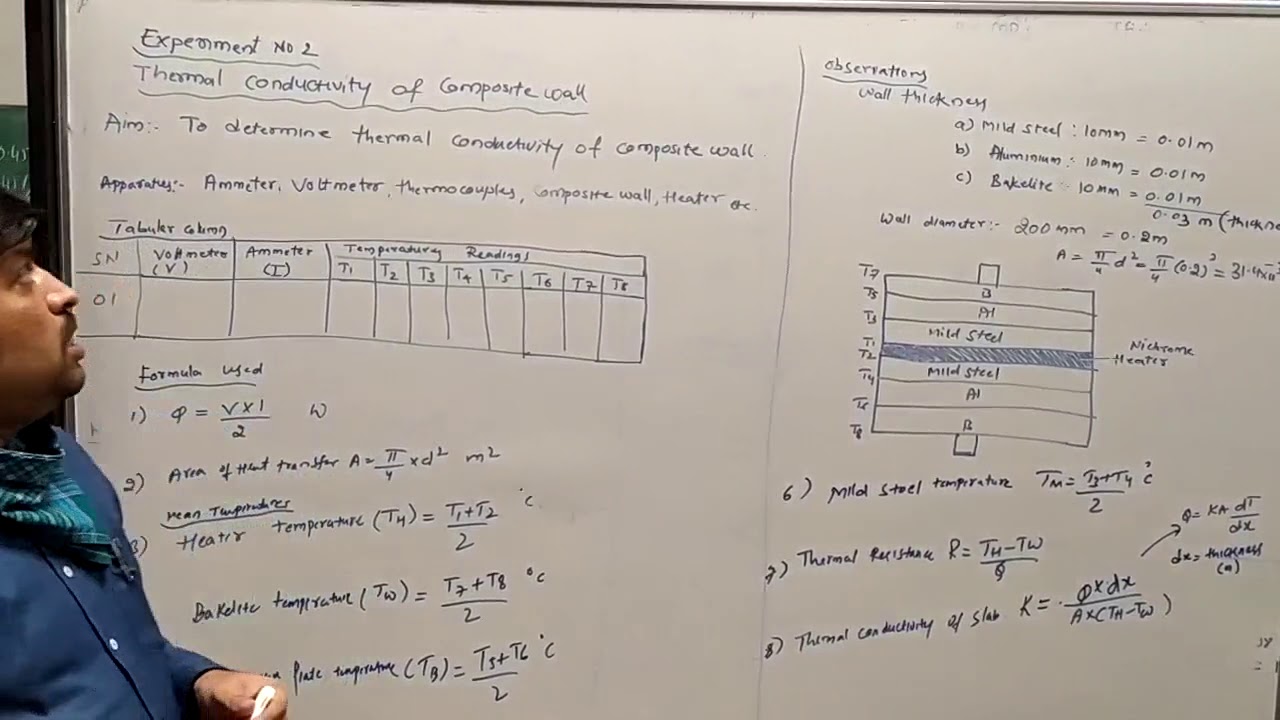 Experiment No 2
Thermal Conductivity of Composite wall
Aim:- To determine thermal conductivity of composite wall.
Apparatus:- Ammeter, Voltmeter, thermocouples, Composite wall, Heater etc.
Tabular column
SN Voltmeter (V) Ammeter (I) Temperature Readings
T1 T2 T3 T4 T5 T6 T7 T8
01
Formula used
1) Q = V×I/2 W
2) Area of Heat transfer A = π/4 × d² m²
Mean Temperatures
3) Heater temperature (TH) = T1+T2/2 °C
Bakelite temperature (TW) = T7+T8/2 °C
Plate temperature (TB) = T5+T6/2 °C
Observations
Wall thickness
a) Mild steel : 10mm = 0.01m
b) Aluminium :- 10mm = 0.01m
c) Bakelite :- 10mm = 0.01m
0.03 m (thickne
Wall diameter:- 200mm = 0.2m
A = π/4 d² = π/4 (0.2)² = 31.4×10
T7
B
T5
Al
T3
Mild Steel
T1
T2
Nichrome
Heater
Mild Steel
T4
Al
T6
B
T8
6) Mild Steel temperature TM = T3+T4/2 °C
7) Thermal Resistance R = TH-TW/Q
Q = KA dT/dx
dx = thickness
8) Thermal conductivity of Slab K = Q×dx/A×(TH-TW)